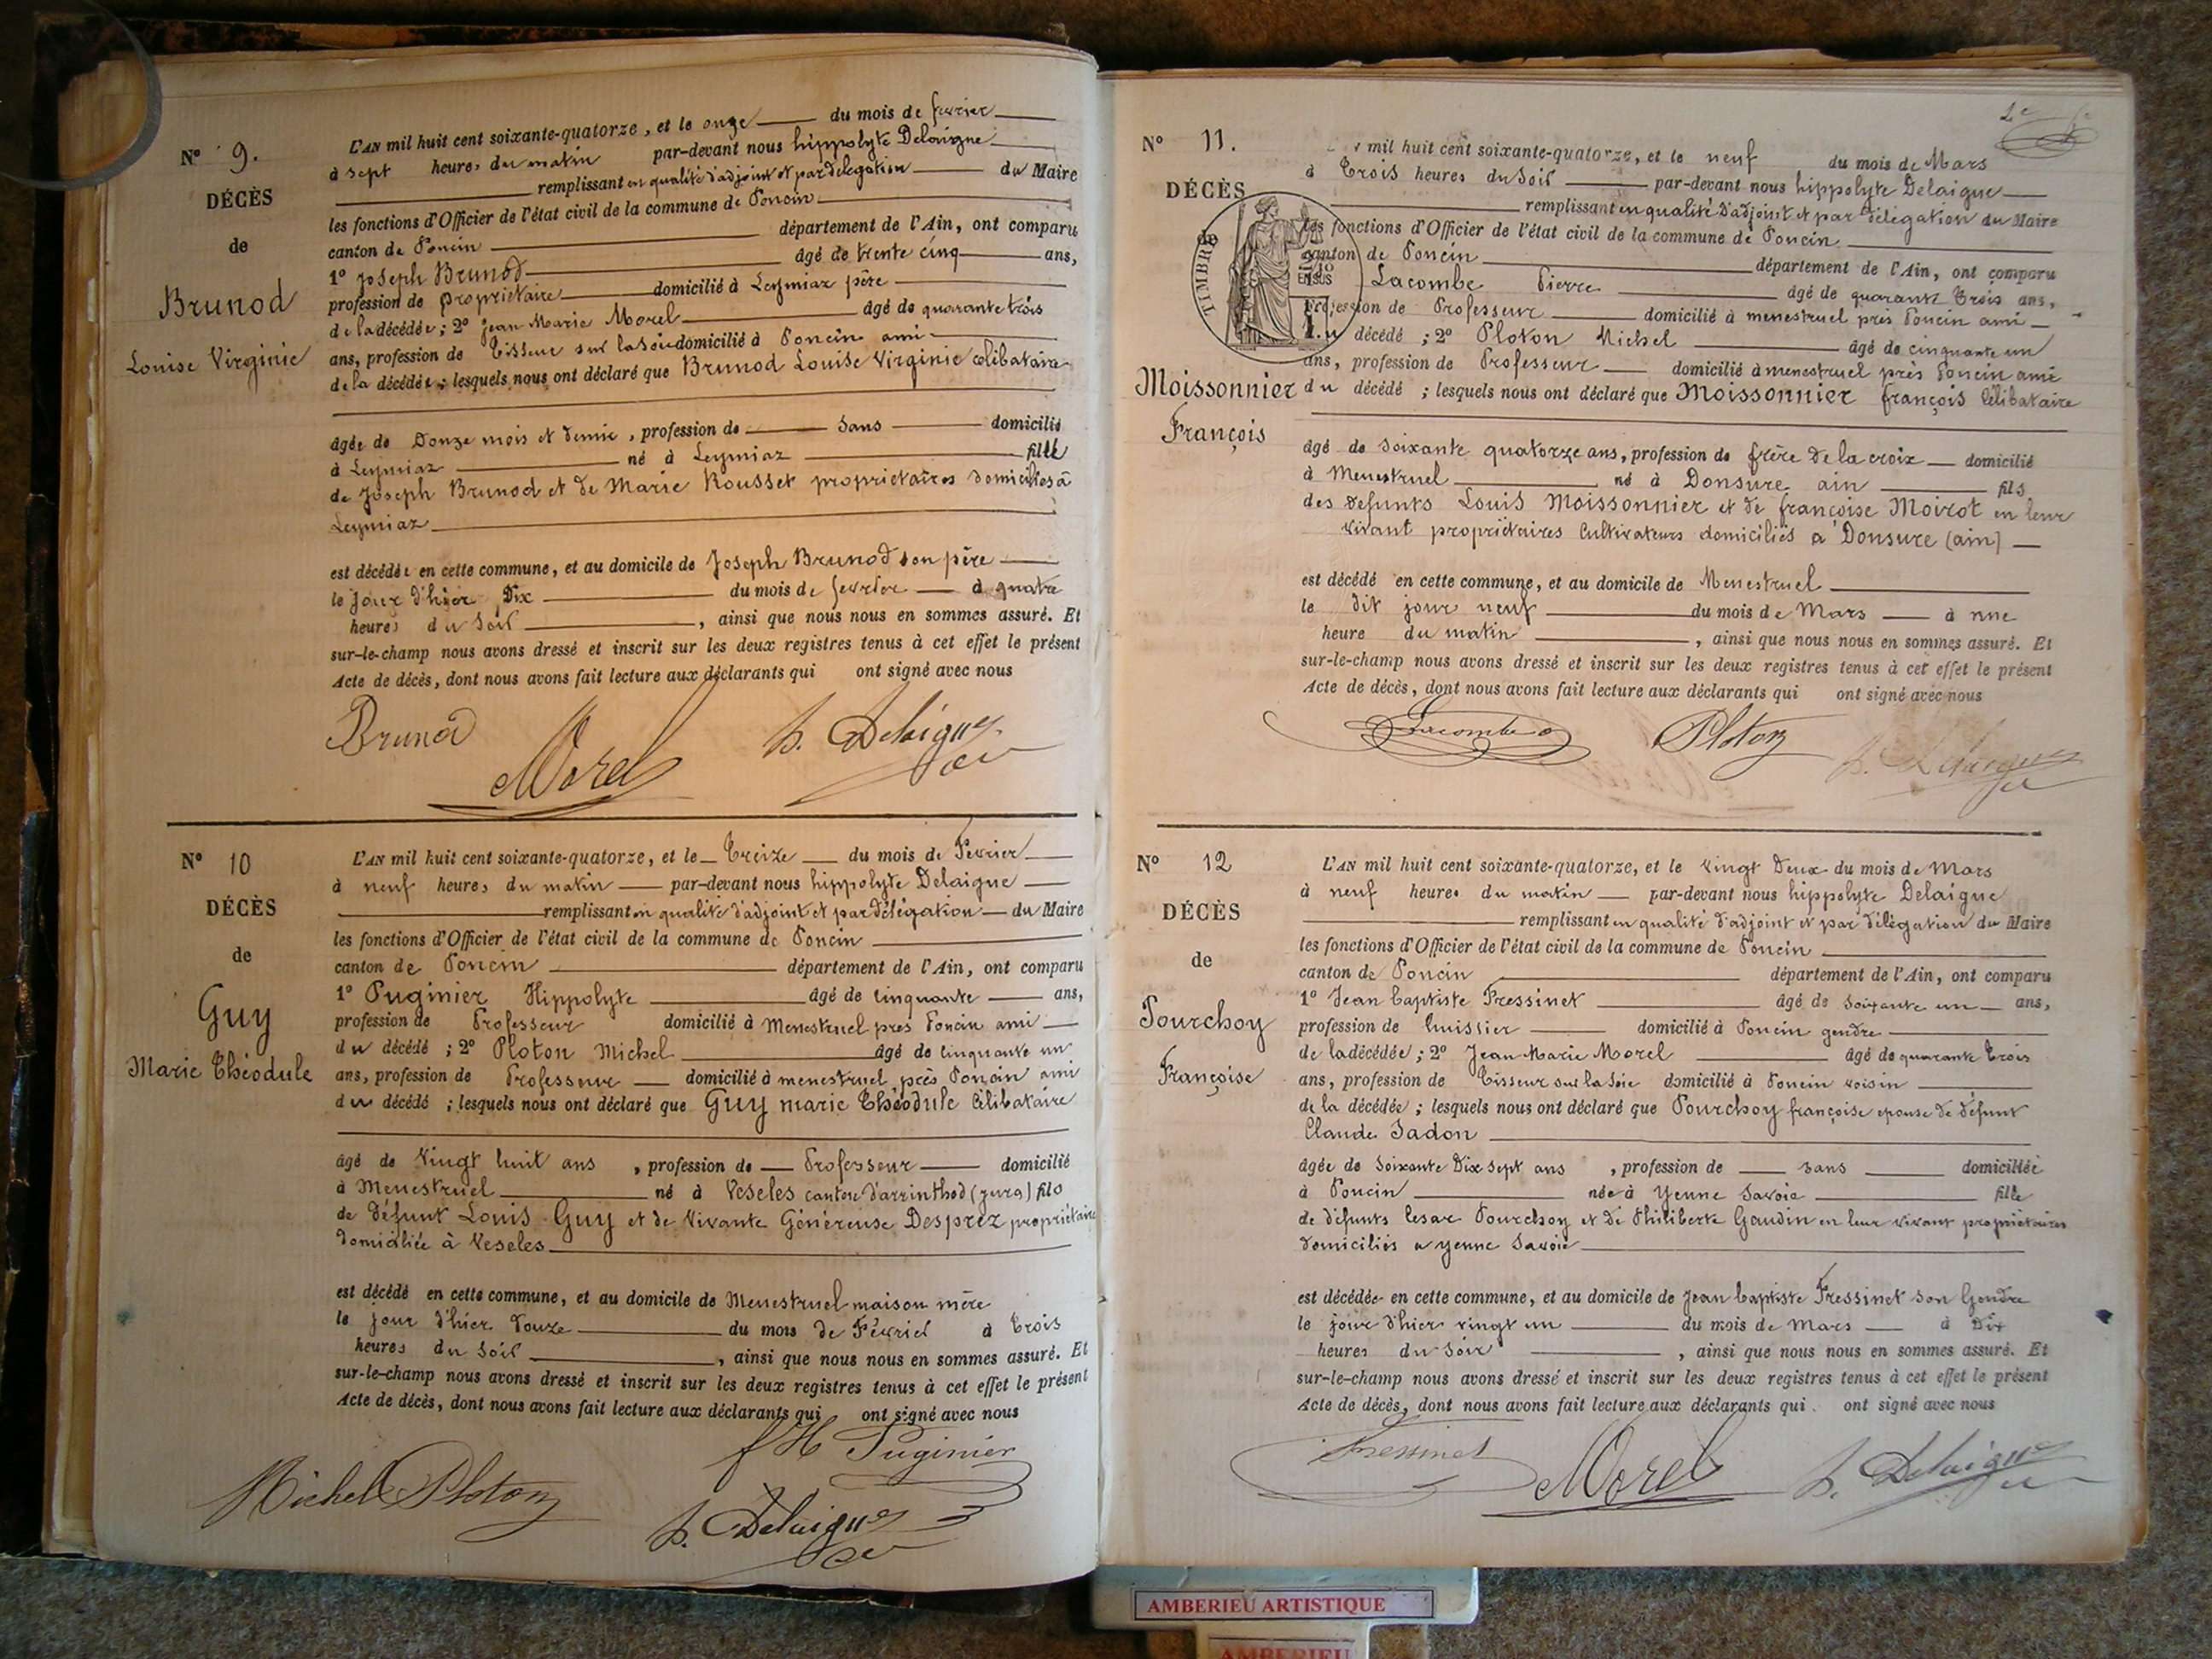 N° 9.
DÉCÈS
de
Brunod
Louise Virginie
L'AN mil huit cent soixante-quatorze, et le onze du mois de fevrier
à sept heures du matin par-devant nous hippolyte Delaigue
remplissant en qualité d'adjoint et par délégation du Maire
les fonctions d'Officier de l'état civil de la commune de Poncin
canton de Poncin département de l'Ain, ont comparu
1° Joseph Brunod âgé de trente cinq ans,
profession de propriétaire domicilié à Leymiaz père
de la décédée ; 2° Jean Marie Morel âgé de quarante trois
ans, profession de Tisseur sur la soie domicilié à Poncin ami
de la décédée ; lesquels nous ont déclaré que Brunod Louise Virginie Célibataire
âgée de Douze mois et demie, profession de sans domicilié
à Leymiaz né à Leymiaz fille
de Joseph Brunod et de Marie Rousset propriétaires domiciliés à
Leymiaz
est décédée en cette commune, et au domicile de Joseph Brunod son père
le jour d'hier Dix du mois de fevrier à quatre
heures du soir, ainsi que nous nous en sommes assuré. Et
sur-le-champ nous avons dressé et inscrit sur les deux registres tenus à cet effet le présent
Acte de décès, dont nous avons fait lecture aux déclarants qui ont signé avec nous
Brunod
Morel
h. Delaigue
N° 10
DÉCÈS
de
Guy
Marie Théodule
L'AN mil huit cent soixante-quatorze, et le Treize du mois de Fevrier
à neuf heures du matin par-devant nous hippolyte Delaigue
remplissant en qualité d'adjoint et par délégation du Maire
les fonctions d'Officier de l'état civil de la commune de Poncin
canton de Poncin département de l'Ain, ont comparu
1° Puginier Hippolyte âgé de Cinquante ans,
profession de Professeur domicilié à Menestruel près Poncin ami
du décédé ; 2° Ploton Michel âgé de Cinquante un
ans, profession de Professeur domicilié à menestruel près Poncin ami
du décédé ; lesquels nous ont déclaré que Guy marie Théodule Célibataire
âgé de Vingt huit ans, profession de Professeur domicilié
à Menestruel né à Veseles canton d'arrinthod (jura) fils
de défunt Louis Guy et de Vivante Généreuse Desprez propriétaire
domiciliée à Veseles
est décédé en cette commune, et au domicile de Menestruel maison mère
le jour d'hier Douze du mois de Février à Trois
heures du soir, ainsi que nous nous en sommes assuré. Et
sur-le-champ nous avons dressé et inscrit sur les deux registres tenus à cet effet le présent
Acte de décès, dont nous avons fait lecture aux déclarants qui ont signé avec nous
f H Puginier
Michel Ploton
h. Delaigue
N° 11.
DÉCÈS
de
TIMBRE
Moissonnier
François
mil huit cent soixante-quatorze, et le neuf du mois de Mars
à Trois heures du soir par-devant nous hippolyte Delaigue
remplissant en qualité d'adjoint et par délégation du Maire
les fonctions d'Officier de l'état civil de la commune de Poncin
canton de Poncin département de l'Ain, ont comparu
Lacombe Pierre âgé de quarante Trois ans,
profession de Professeur domicilié à menestruel près Poncin ami
du décédé ; 2° Ploton Michel âgé de cinquante un
ans, profession de Professeur domicilié à menestruel près Poncin ami
du décédé ; lesquels nous ont déclaré que Moissonnier françois Célibataire
âgé de soixante quatorze ans, profession de frère de la croix domicilié
à Menestruel né à Donsure ain fils
des défunts Louis Moissonnier et de françoise Moirot en leur
vivant propriétaires Cultivateurs domiciliés à Donsure (ain)
est décédé en cette commune, et au domicile de Menestruel
le dit jour neuf du mois de Mars à une
heure du matin, ainsi que nous nous en sommes assuré. Et
sur-le-champ nous avons dressé et inscrit sur les deux registres tenus à cet effet le présent
Acte de décès, dont nous avons fait lecture aux déclarants qui ont signé avec nous
Lacombe
Ploton
h. Delaigue
N° 12
DÉCÈS
de
Pourchoy
Françoise
L'AN mil huit cent soixante-quatorze, et le Vingt Deux du mois de Mars
à neuf heures du matin par-devant nous hippolyte Delaigue
remplissant en qualité d'adjoint et par délégation du Maire
les fonctions d'Officier de l'état civil de la commune de Poncin
canton de Poncin département de l'Ain, ont comparu
1° Jean Baptiste Fressinet âgé de soixante un ans,
profession de huissier domicilié à Poncin gendre
de la décédée ; 2° Jean Marie Morel âgé de quarante Trois
ans, profession de Tisseur sur la soie domicilié à Poncin voisin
de la décédée ; lesquels nous ont déclaré que Pourchoy françoise epouse de défunt
Claude Jadon
âgée de soixante Dix sept ans, profession de sans domiciliée
à Poncin née à Yenne Savoie fille
de défunts Cesar Pourchoy et de Philiberte Gaudin en leur vivant propriétaires
domiciliés a yenne Savoie
est décédée en cette commune, et au domicile de Jean baptiste Fressinet son Gendre
le jour d'hier vingt un du mois de Mars à Dix
heures du soir, ainsi que nous nous en sommes assuré. Et
sur-le-champ nous avons dressé et inscrit sur les deux registres tenus à cet effet le présent
Acte de décès, dont nous avons fait lecture aux déclarants qui ont signé avec nous
Fressinet
Morel
h. Delaigue
AMBERIEU ARTISTIQUE
AMBERIEU